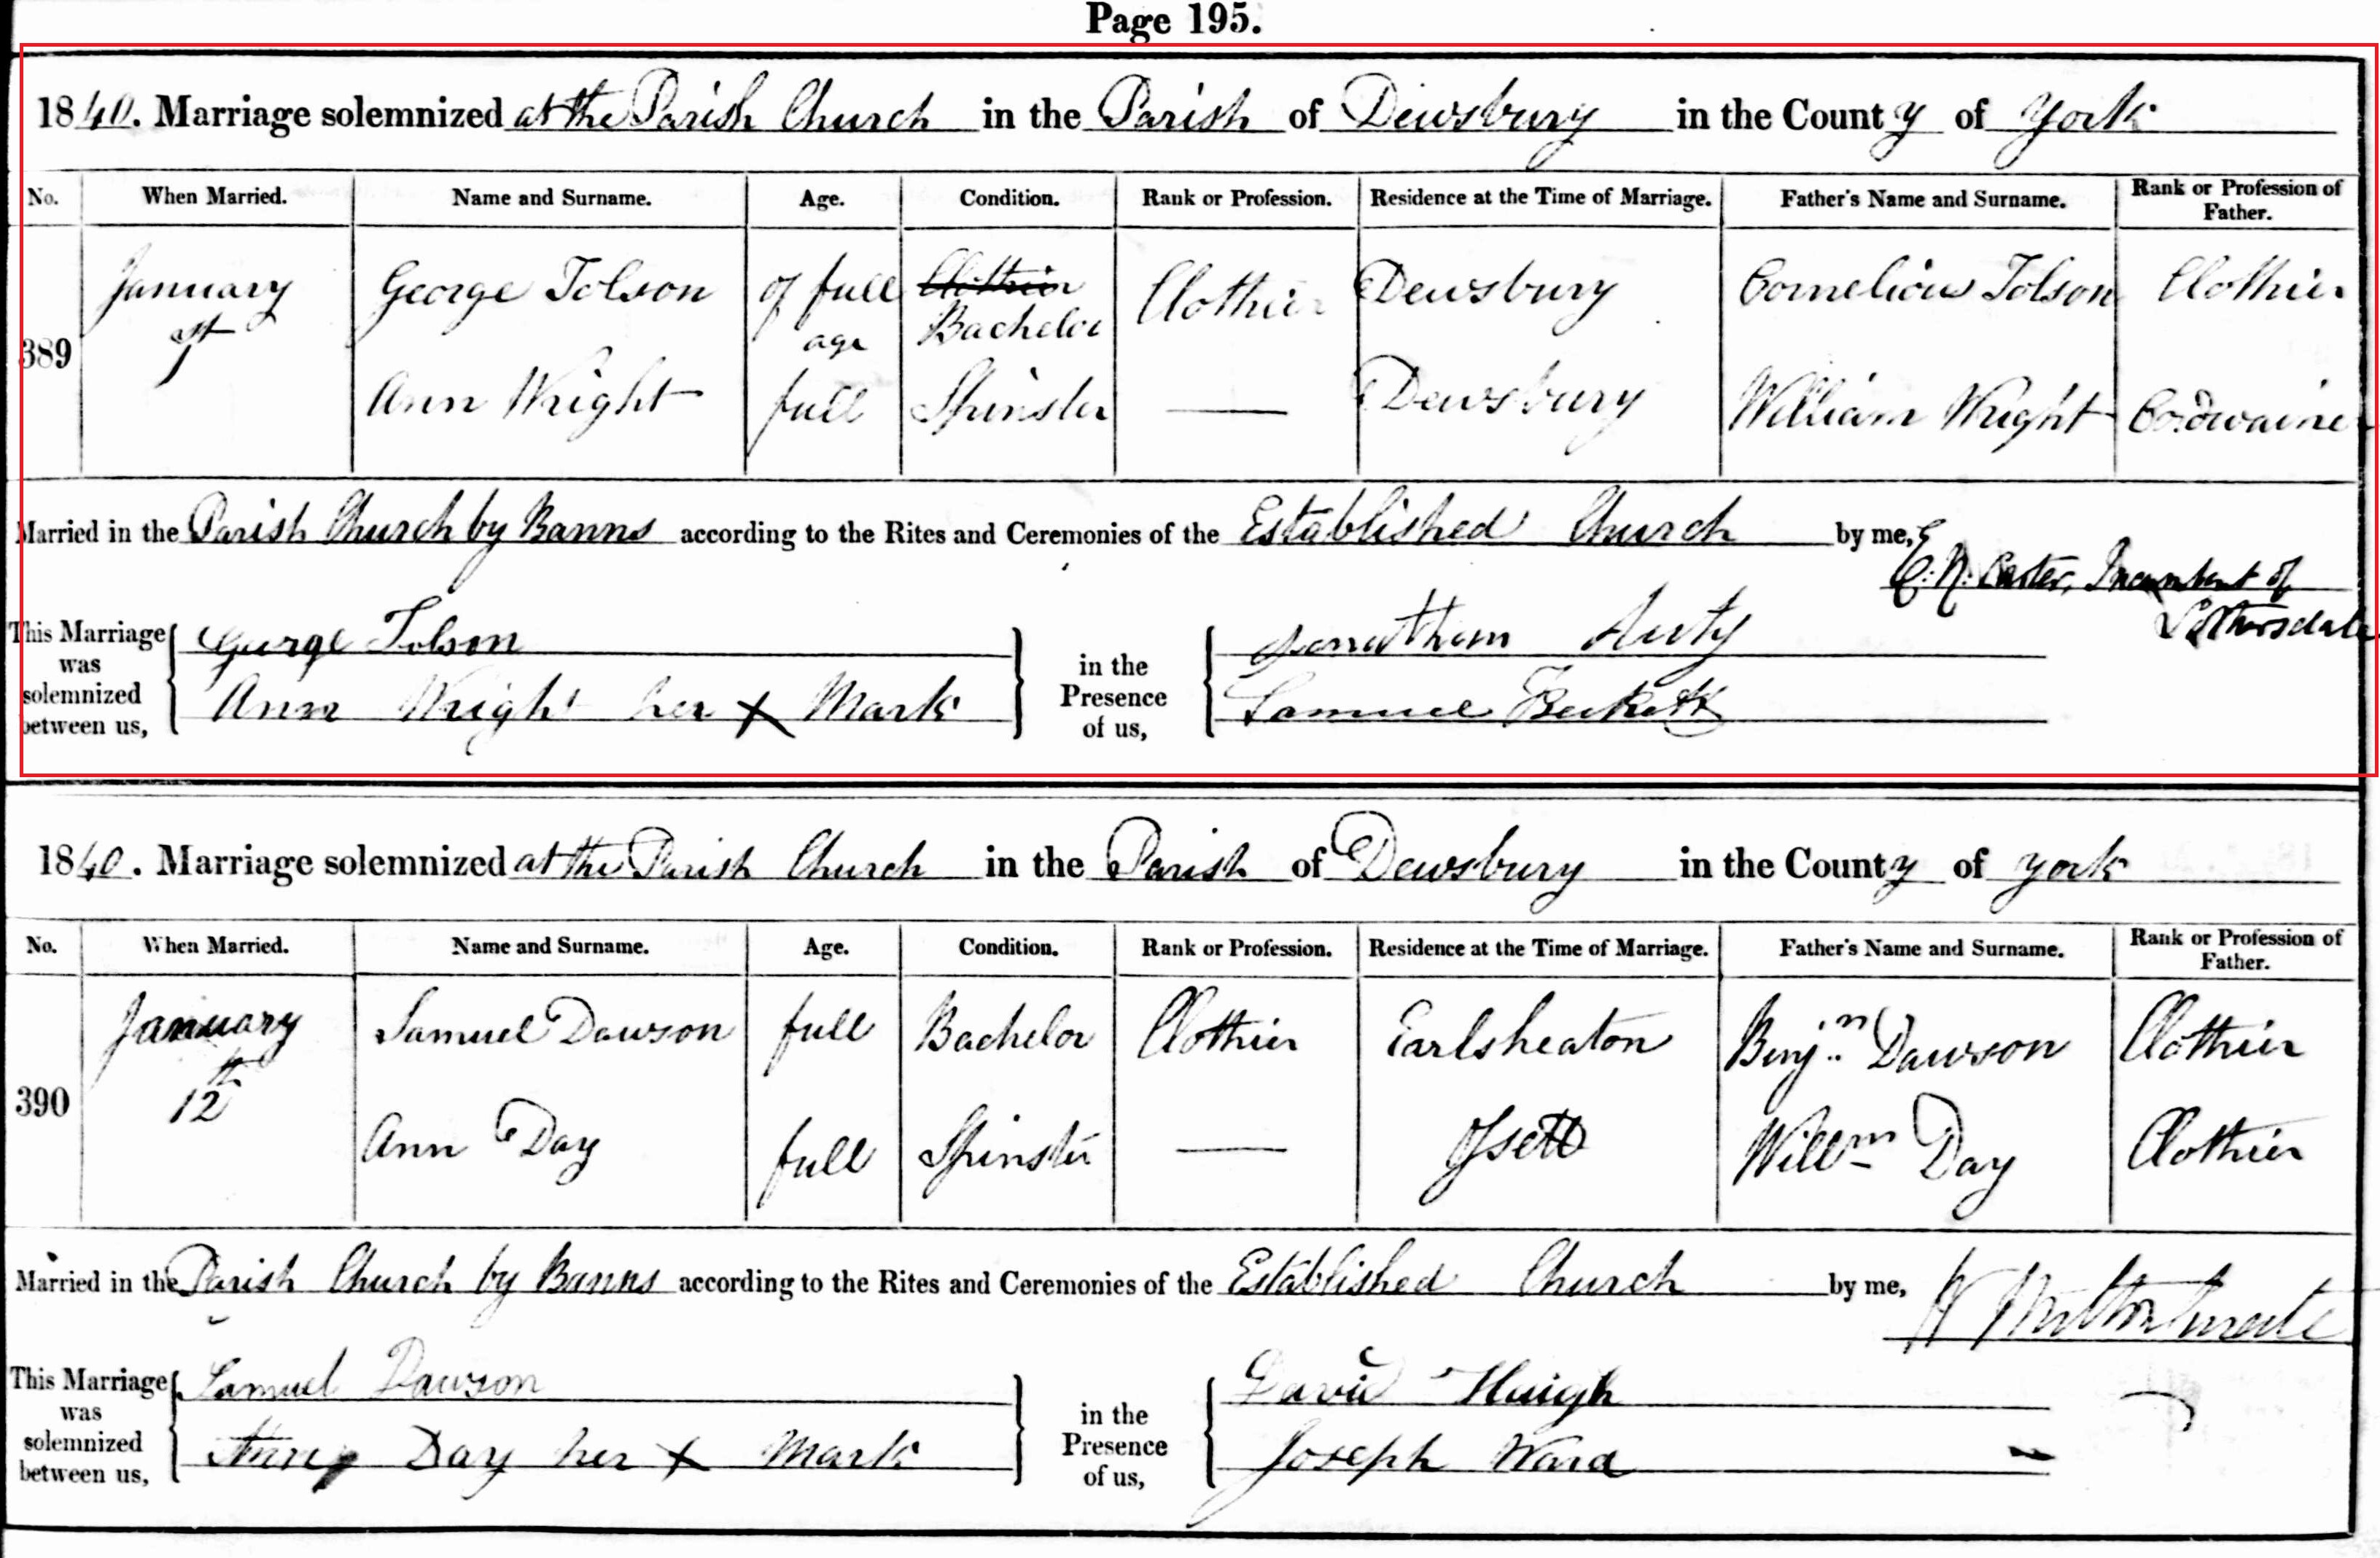 Page 195.
1840. Marriage solemnized at the Parish Church in the Parish of Dewsbury in the County of York
No. When Married. Name and Surname. Age. Condition. Rank or Profession. Residence at the Time of Marriage. Father's Name and Surname. Rank or Profession of Father.
389 January 1st George Tolson of full age Clothier Bachelor Clothier Dewsbury Cornelious Tolson Clothier
Ann Wright full Spinster — Dewsbury William Wright Cordwainer
Married in the Parish Church by Banns according to the Rites and Ceremonies of the Established Church by me,
C. N. Carter, Incumbent of
Lothersdale
This Marriage was solemnized between us, George Tolson
Ann Wright her X Mark
in the Presence of us, Jonathan Auty
Samuel Beckett
1840. Marriage solemnized at the Parish Church in the Parish of Dewsbury in the County of York
No. When Married. Name and Surname. Age. Condition. Rank or Profession. Residence at the Time of Marriage. Father's Name and Surname. Rank or Profession of Father.
390 January 12th Samuel Dawson full Bachelor Clothier Earlsheaton Benjn. Dawson Clothier
Ann Day full Spinster — Ossett Willm Day Clothier
Married in the Parish Church by Banns according to the Rites and Ceremonies of the Established Church by me,
This Marriage was solemnized between us, Samuel Dawson
Day her X Mark
in the Presence of us, David Haigh
Joseph Ward